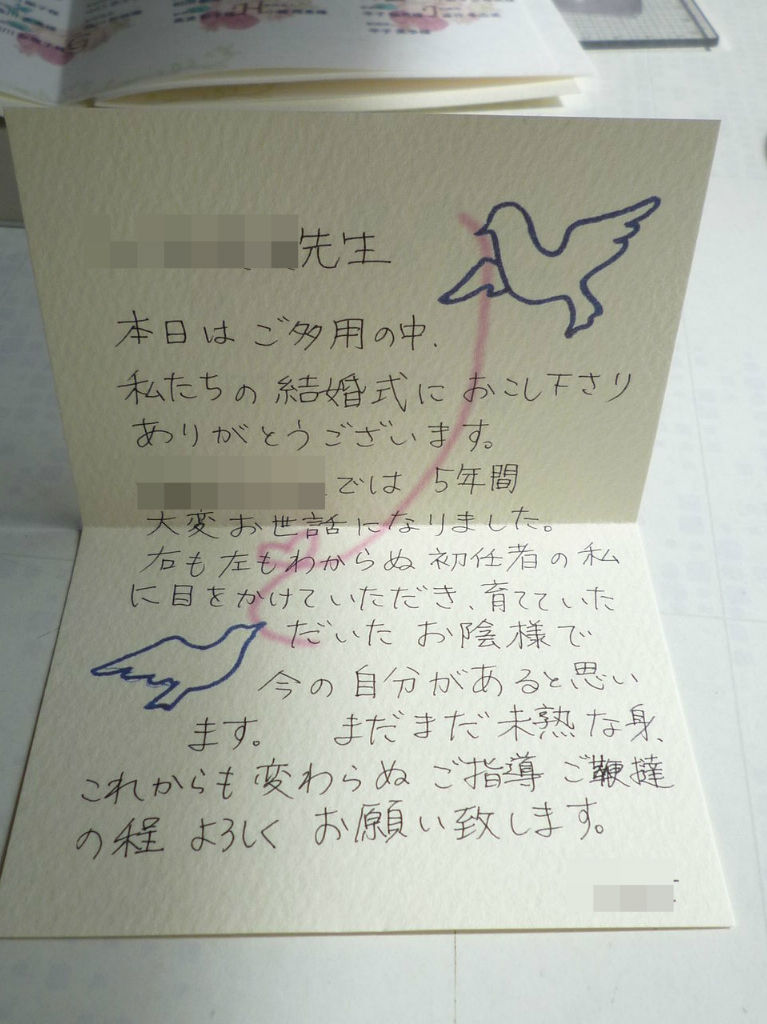 先生
本日は ご多用の中、
私たちの 結婚式に おこし下さり
ありがとうございます。
では 5年間
大変お世話になりました。
右も左もわからぬ 初任者の私
に目をかけていただき、育てていた
だいた お陰様で
今の自分があると思い
ます。 まだまだ未熟な身、
これからも変わらぬ ご指導 ご鞭撻
の程 よろしく お願い致します。